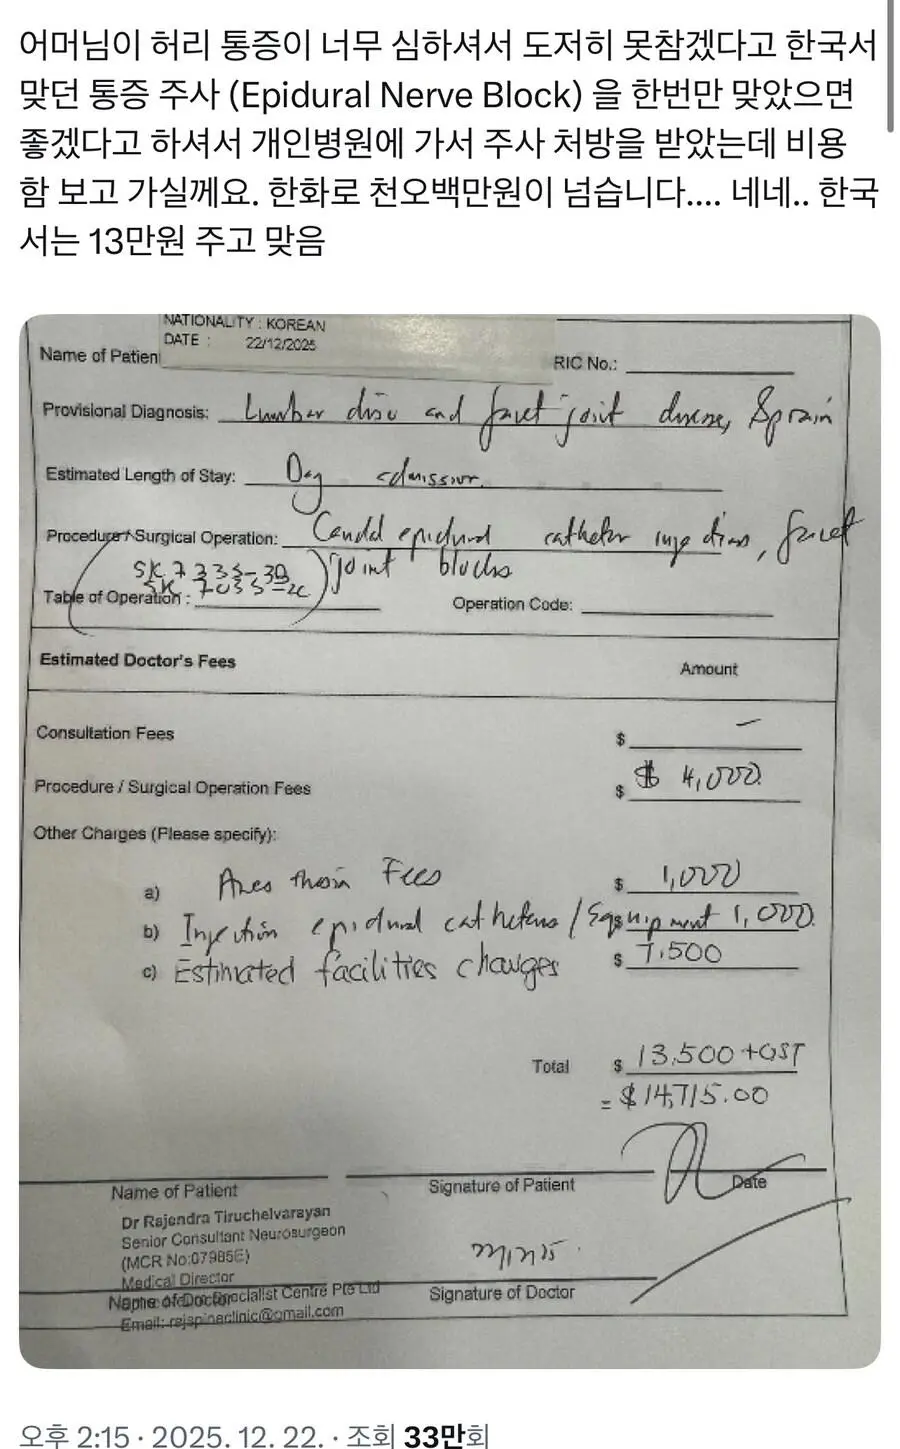 어머님이 허리 통증이 너무 심하셔서 도저히 못참겠다고 한국서
맞던 통증 주사 (Epidural Nerve Block) 을 한번만 맞았으면
좋겠다고 하셔서 개인병원에 가서 주사 처방을 받았는데 비용
함 보고 가실께요. 한화로 천오백만원이 넘습니다.... 네네.. 한국
서는 13만원 주고 맞음
NATIONALITY : KOREAN
DATE : 22/12/2025
Name of Patien
RIC No.:
Provisional Diagnosis: Lumbar disc and facet joint disease, Sprain
Estimated Length of Stay: Day admission.
Procedure / Surgical Operation: Caudal epidural catheter injections, facet
joint blocks
Table of Operation :
Operation Code:
Estimated Doctor's Fees
Amount
Consultation Fees $ –
Procedure / Surgical Operation Fees $ $ 4,000
Other Charges (Please specify):
a) Fees $ 1,000
b) Injection epidural catheters / Equipment 1,000
c) Estimated facilities charges $ 7,500
Total $ 13,500 + GST
= $14,715.00
Name of Patient
Signature of Patient
Date
Dr Rajendra Tiruchelvarayan
Senior Consultant Neurosurgeon
(MCR No:07985E)
Medical Director
Centre Pte Ltd
Signature of Doctor
Email: rajspineclinic@gmail.com
오후 2:15 · 2025. 12. 22. · 조회 33만회